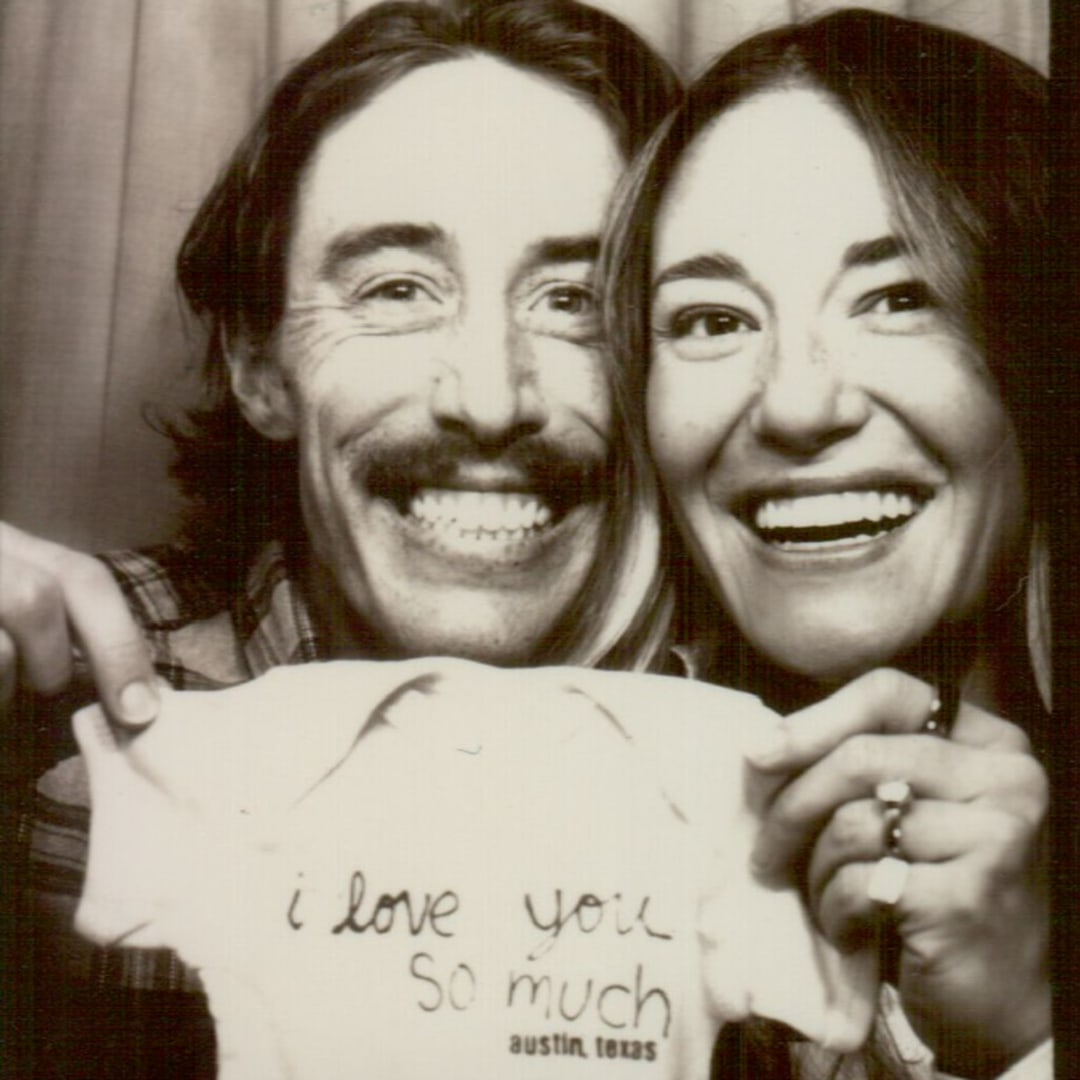 i love you
so much
austin, texas